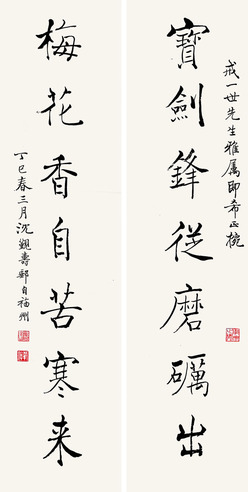 戒一世先生雅属即希正椀
寶劍鋒從磨礪出
梅花香自苦寒来
丁巳春三月沈覲壽邮自福州